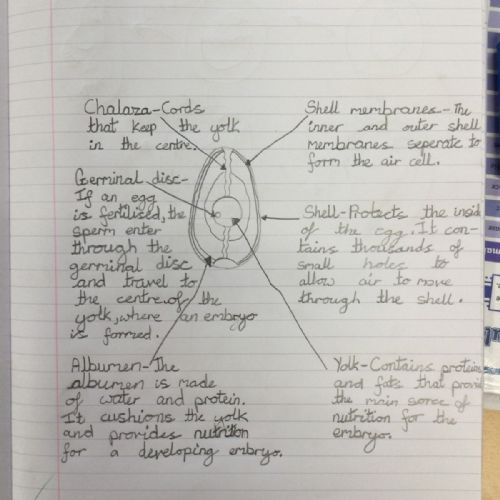 Chalaza-Cords
that keep the yolk
in the centre.
Shell membranes-The
inner and outer shell
membranes seperate to
form the air cell.
Germinal disc-
If an egg
is fertilised, the
sperm enter
through the
germinal disc
and travel to
the centre of the
yolk, where an embryo
is formed.
Shell-Protects the inside
of the egg. It con-
tains thousands of
small holes to
allow air to move
through the shell.
Albumen-The
albumen is made
of water and protein.
It cushions the yolk
and provides nutrition
for a developing embryo.
Yolk-Contains proteins
and fats that provi
the main sorce of
nutrition for the
embryo.